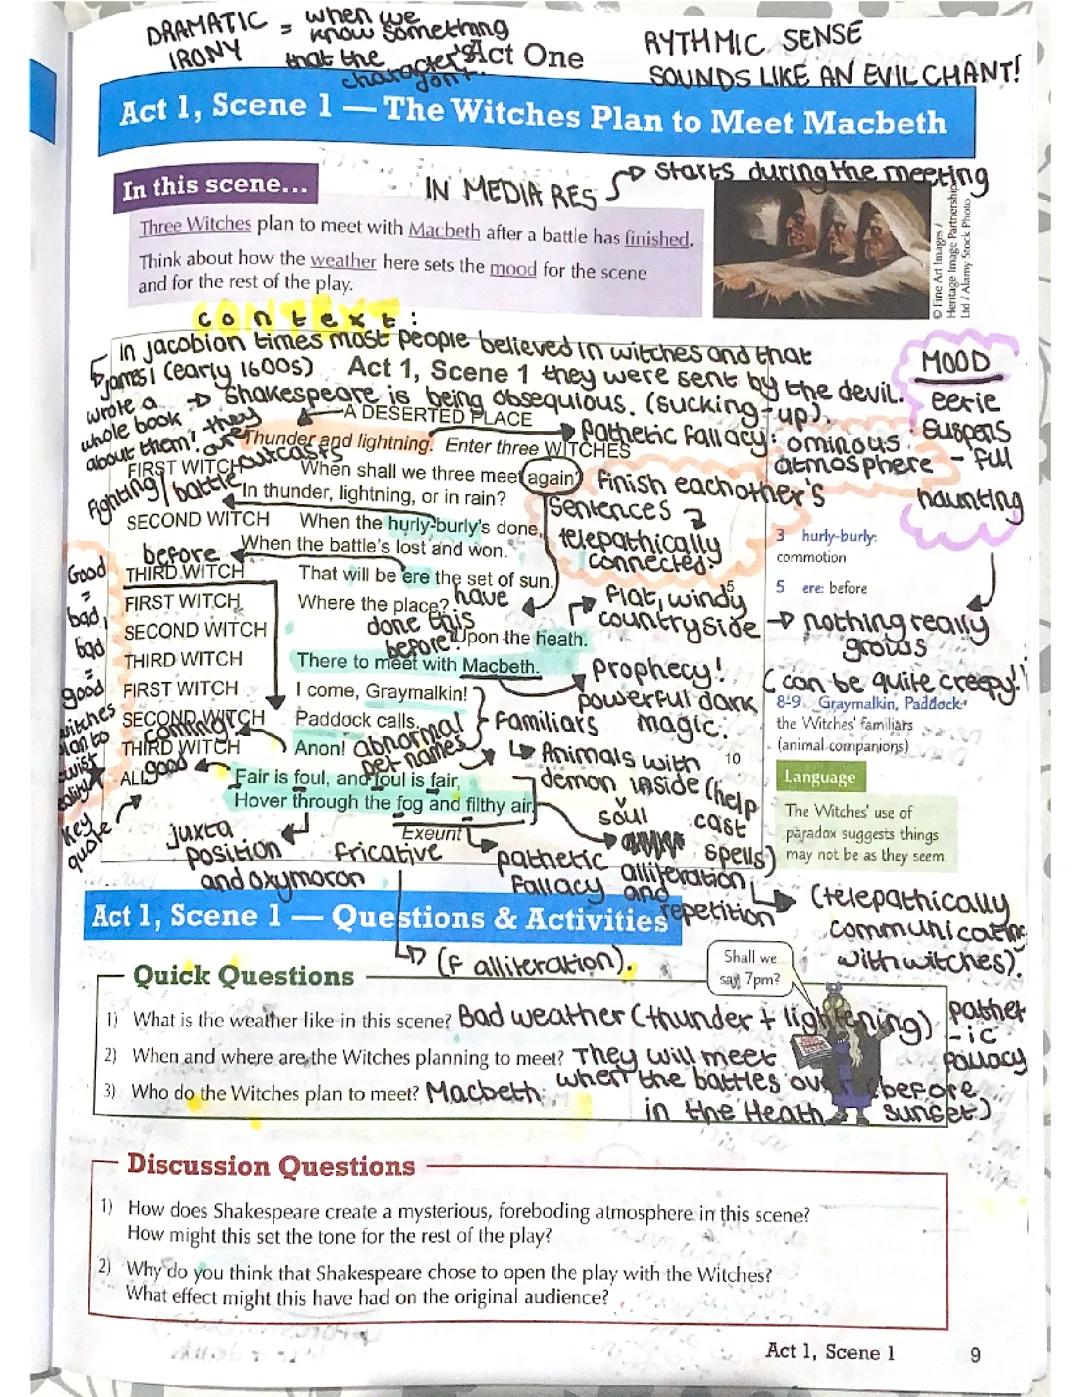 DRAMATIC = when we
IRONY know something
that the
character's
don't.
Act One
RYTHMIC SENSE
SOUNDS LIKE AN EVIL CHANT!
Act 1, Scene 1 — The Witches Plan to Meet Macbeth
In this scene...
IN MEDIA RES → starts during the meeting
Three Witches plan to meet with Macbeth after a battle has finished.
Think about how the weather here sets the mood for the scene
and for the rest of the play.
© Fine Art Images /
Heritage Image Partnership
Ltd / Alamy Stock Photo
context:
In jacobion times most people believed in witches and that
they were sent by the devil.
James I (early 1600s)
wrote a
whole book
about them!
→ Shakespeare is being obsequious. (sucking-up).
they
are
outcasts
Act 1, Scene 1
A DESERTED PLACE
Thunder and lightning. Enter three WITCHES
pathetic fallacy: ominous
atmosphere
MOOD
eerie
suspens
- ful
haunting
FIRST WITCH When shall we three meet again
In thunder, lightning, or in rain?
fighting / battle
finish eachother's
sentences
telepathically
connected.
SECOND WITCH When the hurly-burly's done,
When the battle's lost and won.
before
THIRD WITCH That will be ere the set of sun. 5
FIRST WITCH Where the place?
have
done this
before!
SECOND WITCH Upon the heath.
flat, windy
countryside → nothing really
grows
(can be quite creepy!
THIRD WITCH There to meet with Macbeth.
prophecy!
powerful dark
magic.
FIRST WITCH I come, Graymalkin!
SECOND WITCH Paddock calls.
familiars
Animals with
demon inside (help
soul cast
spells)
abnormal
pet names
coming
THIRD WITCH Anon! 10
good
ALL Fair is foul, and foul is fair,
Hover through the fog and filthy air.
Exeunt
Good
=
bad,
bad
=
good
witches
plan to
twist
Key
quote
juxta
position
and oxymoron
fricative
(f alliteration).
pathetic
fallacy
alliteration
and
repetition
(telepathically
communicating
with witches).
3 hurly-burly:
commotion
5 ere: before
8-9 Graymalkin, Paddock:
the Witches' familiars
(animal companions)
Language
The Witches' use of
paradox suggests things
may not be as they seem.
Act 1, Scene 1 — Questions & Activities
Shall we
say 7pm?
Quick Questions
1) What is the weather like in this scene? Bad weather (thunder + lightening) pathet
-ic
fallacy
2) When and where are the Witches planning to meet? They will meet
when the battles over (before
in the Heath sunset)
3) Who do the Witches plan to meet? Macbeth.
Discussion Questions
1) How does Shakespeare create a mysterious, foreboding atmosphere in this scene?
How might this set the tone for the rest of the play?
2) Why do you think that Shakespeare chose to open the play with the Witches?
What effect might this have had on the original audience?
Act 1, Scene 1
9